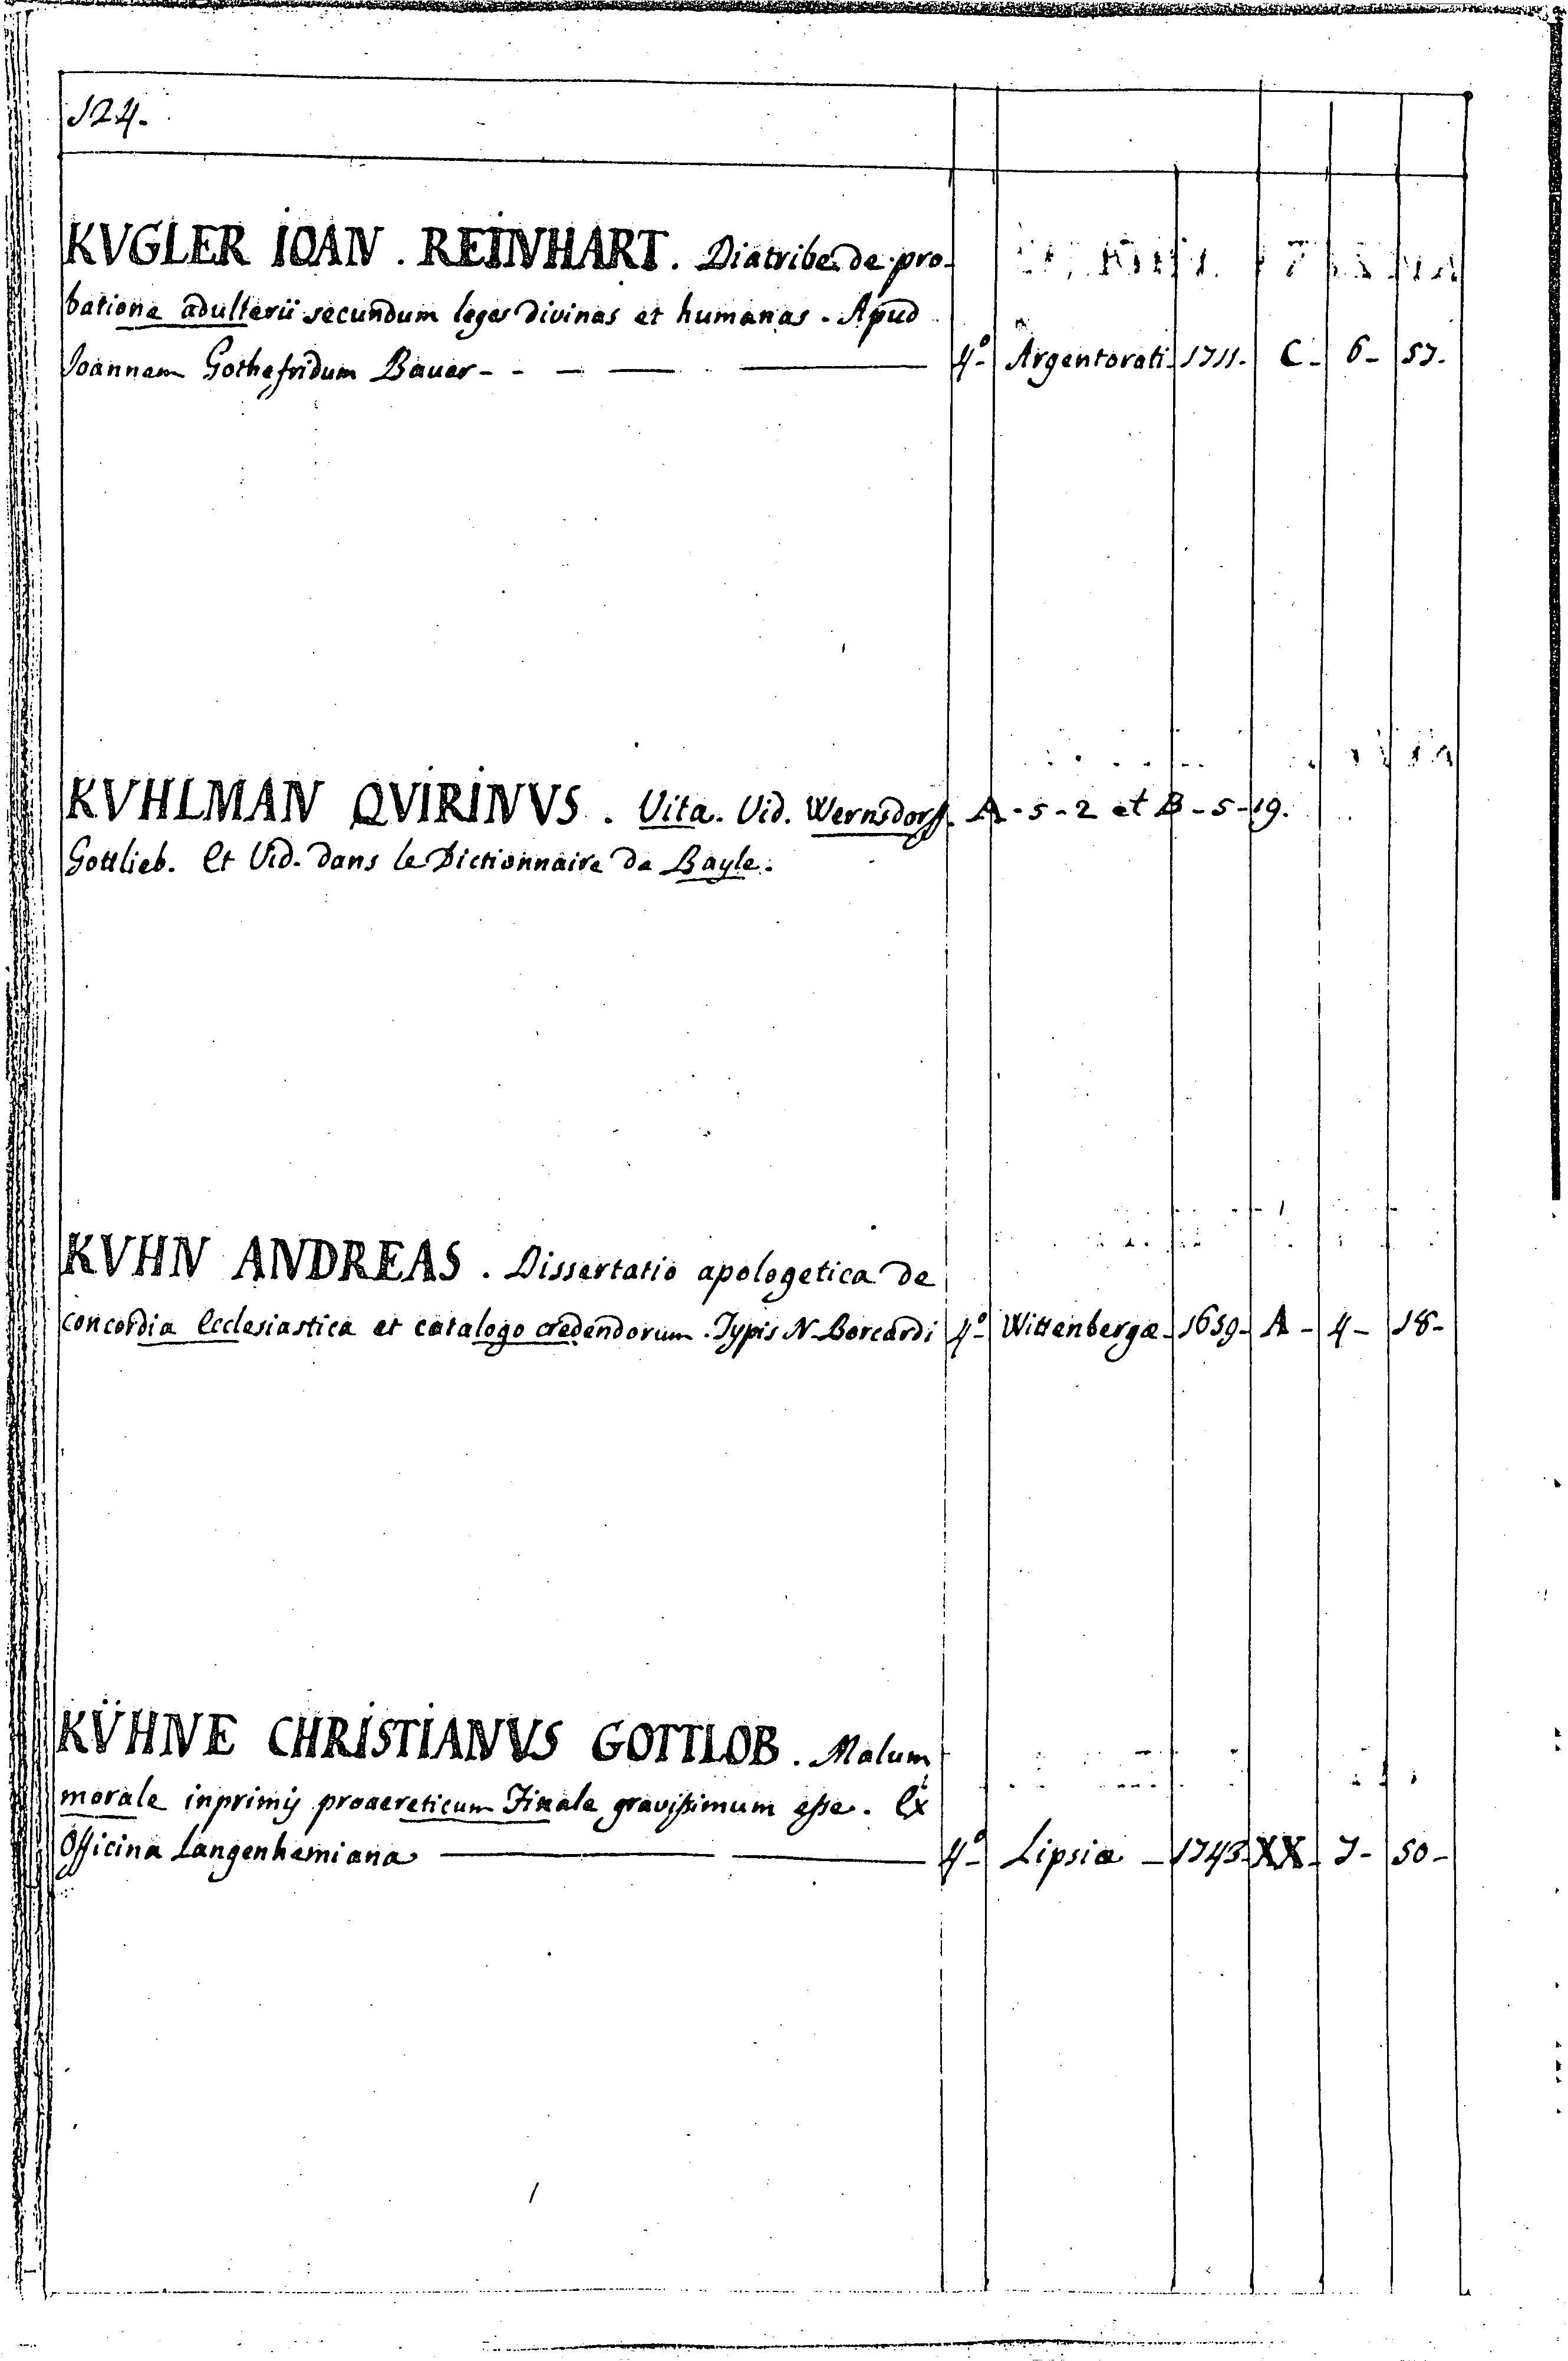 124.
KVGLER IOAN. REINHART. Diatribe de pro-
batione adulterii secundum leges divinas et humanas. Apud
Joannem Gothefridum Bauer - - — — — 4° Argentorati 1711. C - 6 - 57.
KVHLMAN QVIRINVS. Vita. Vid. Wernsdorf. A - 5 - 2 et B - 5 - 19.
Gottlieb. Et Vid. dans le Dictionnaire de Bayle.
KVHN ANDREAS. Dissertatio apologetica de
concordia Ecclesiastica et catalogo credendorum. Typis N. Borcardi 4° Wittenbergæ - 1659 - A - 4 - 18 -
KÜHNE CHRISTIANVS GOTTLOB. Malum
morale inprimis proaereticum Finale gravissimum esse. Ex
Officina Langenhemiana — — 4° Lipsiæ - 1743. XX - 7 - 50 -